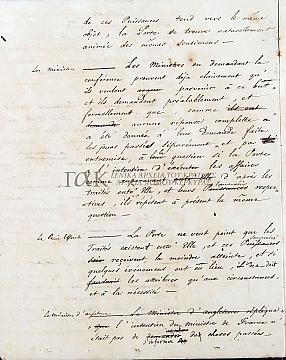 de ces Puissances tend vers le même
objet, la Porte se trouve naturellement
animée des mêmes sentimens —
Les ministres — Les Ministres en demandant la
conférence prouvent déjà clairement qu'
ils veulent parvenir à ce but
et ils demandent préalablement et
formellement que comme
aucune réponse complète n'
a été donnée à leur demande faite
les jours passés séparément, et par
entremise, à leur question si la Porte
a intention d'exécuter les affaires
d'après les
traités entr' Elle, et leurs respec
tives, ils répètent à présent la même
question
Le Reis Effendi — La Porte ne veut point que les
Traités existant entr' Elle, et ces Puissances
reçoivent la moindre atteinte, et si
quelques événemens ont eu lieu,
les attribuer qu'aux circonstances,
et à la nécessité
Le ministre d'angleterre — Le Ministre d'angleterre répliqua
l'intention du ministre de France n'
était pas de des choses passées
ΓΕΝΙΚΑ ΑΡΧΕΙΑ ΤΟΥ ΚΡΑΤΟΥΣ